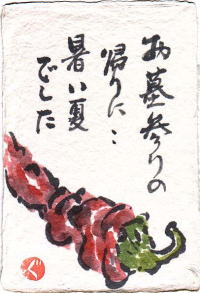 お墓参りの
帰りに…
暑い夏
でした
ぐ